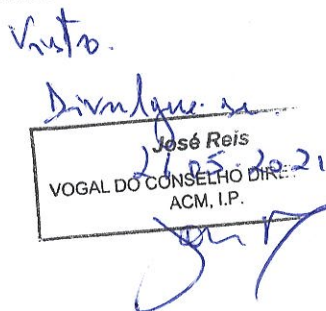 Visto.
Divulgue-se
José Reis
21.05.2021
VOGAL DO CONSELHO DIRE
ACM, I.P.